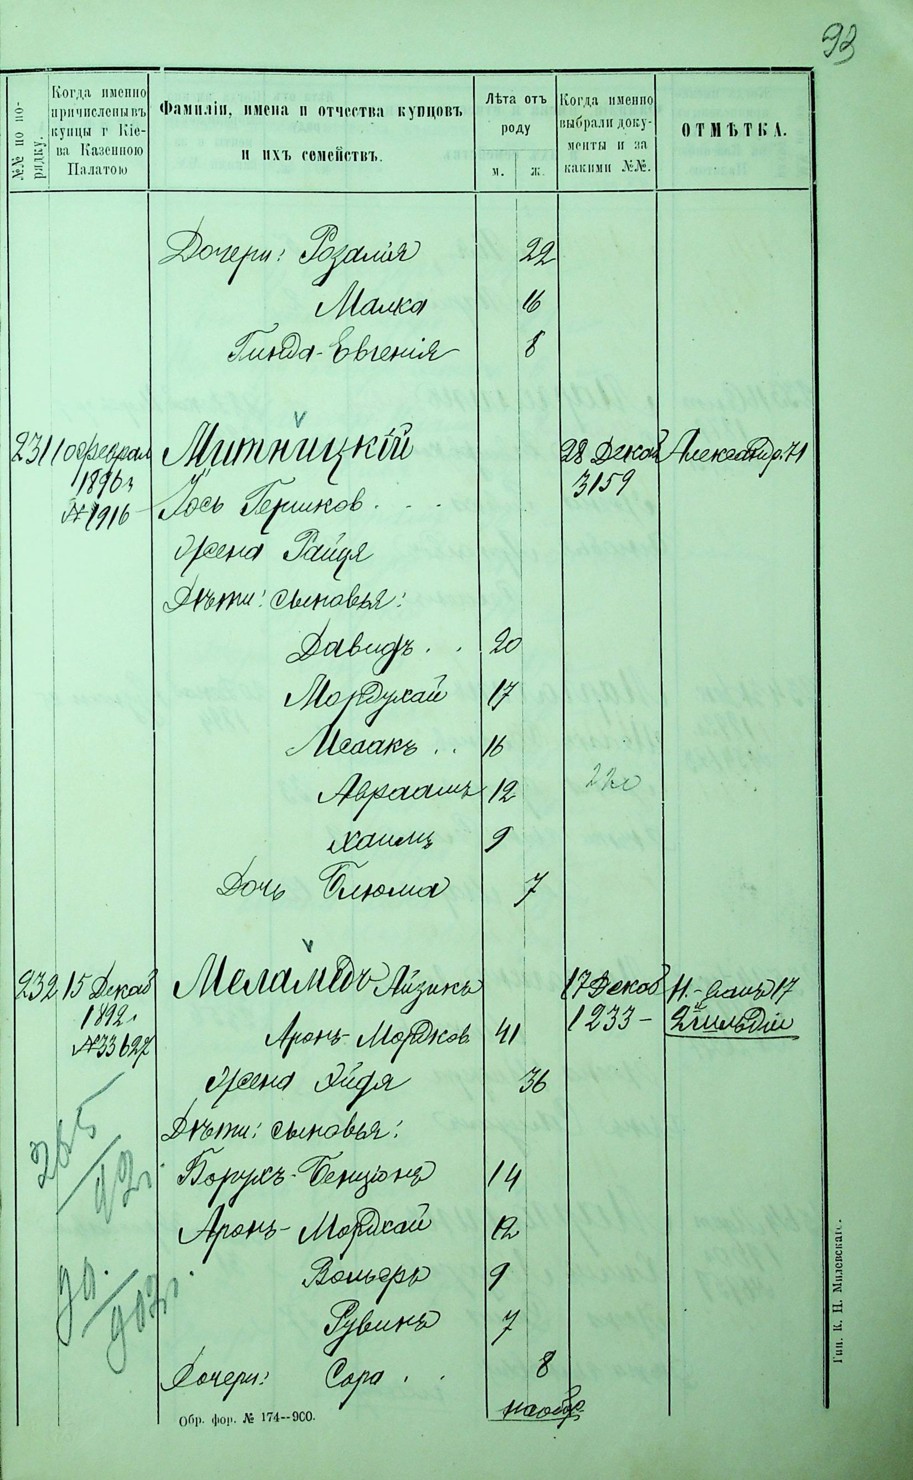 93
№№ по по-
рядку.
Когда именно
причислены въ
купцы г Кіе-
ва Казенною
Палатою
Фамиліи, имена и отчества купцовъ
и ихъ семействъ.
Лѣта отъ
роду
м. ж.
Когда именно
выбрали доку-
менты и за
какими №№.
ОТМѢТКА.
Дочери: Розалія 22
Малка 16
Гинда-Евгенія 8
231 10 феврал Митницкій 28 Декаб Александр. 71
1896 г 3159
№ 1916 Іось Гершков . . .
Жена Райзя
Дѣти: сыновья:
Давидъ . . 20
Мордухай 17
Исаакъ . . 16
Авраамъ 12
Хаимъ 9
Дочь Блюма 7
232 15 Декаб Меламедъ Айзикъ 17 Декаб 17
1892 г Аронъ-Мордков 41 1233 - 2й гильдіи
№ 33627
Жена Хидя 36
Дѣти: сыновья:
265
Борухъ-Бенціонъ 14
Аронъ-Мордхай 12
Вольфъ 9
Рувинъ 7
Дочери: Сора . . 8
на обор
Обр. фор. № 174--900.
Тип. К. Н. Милевскаго.